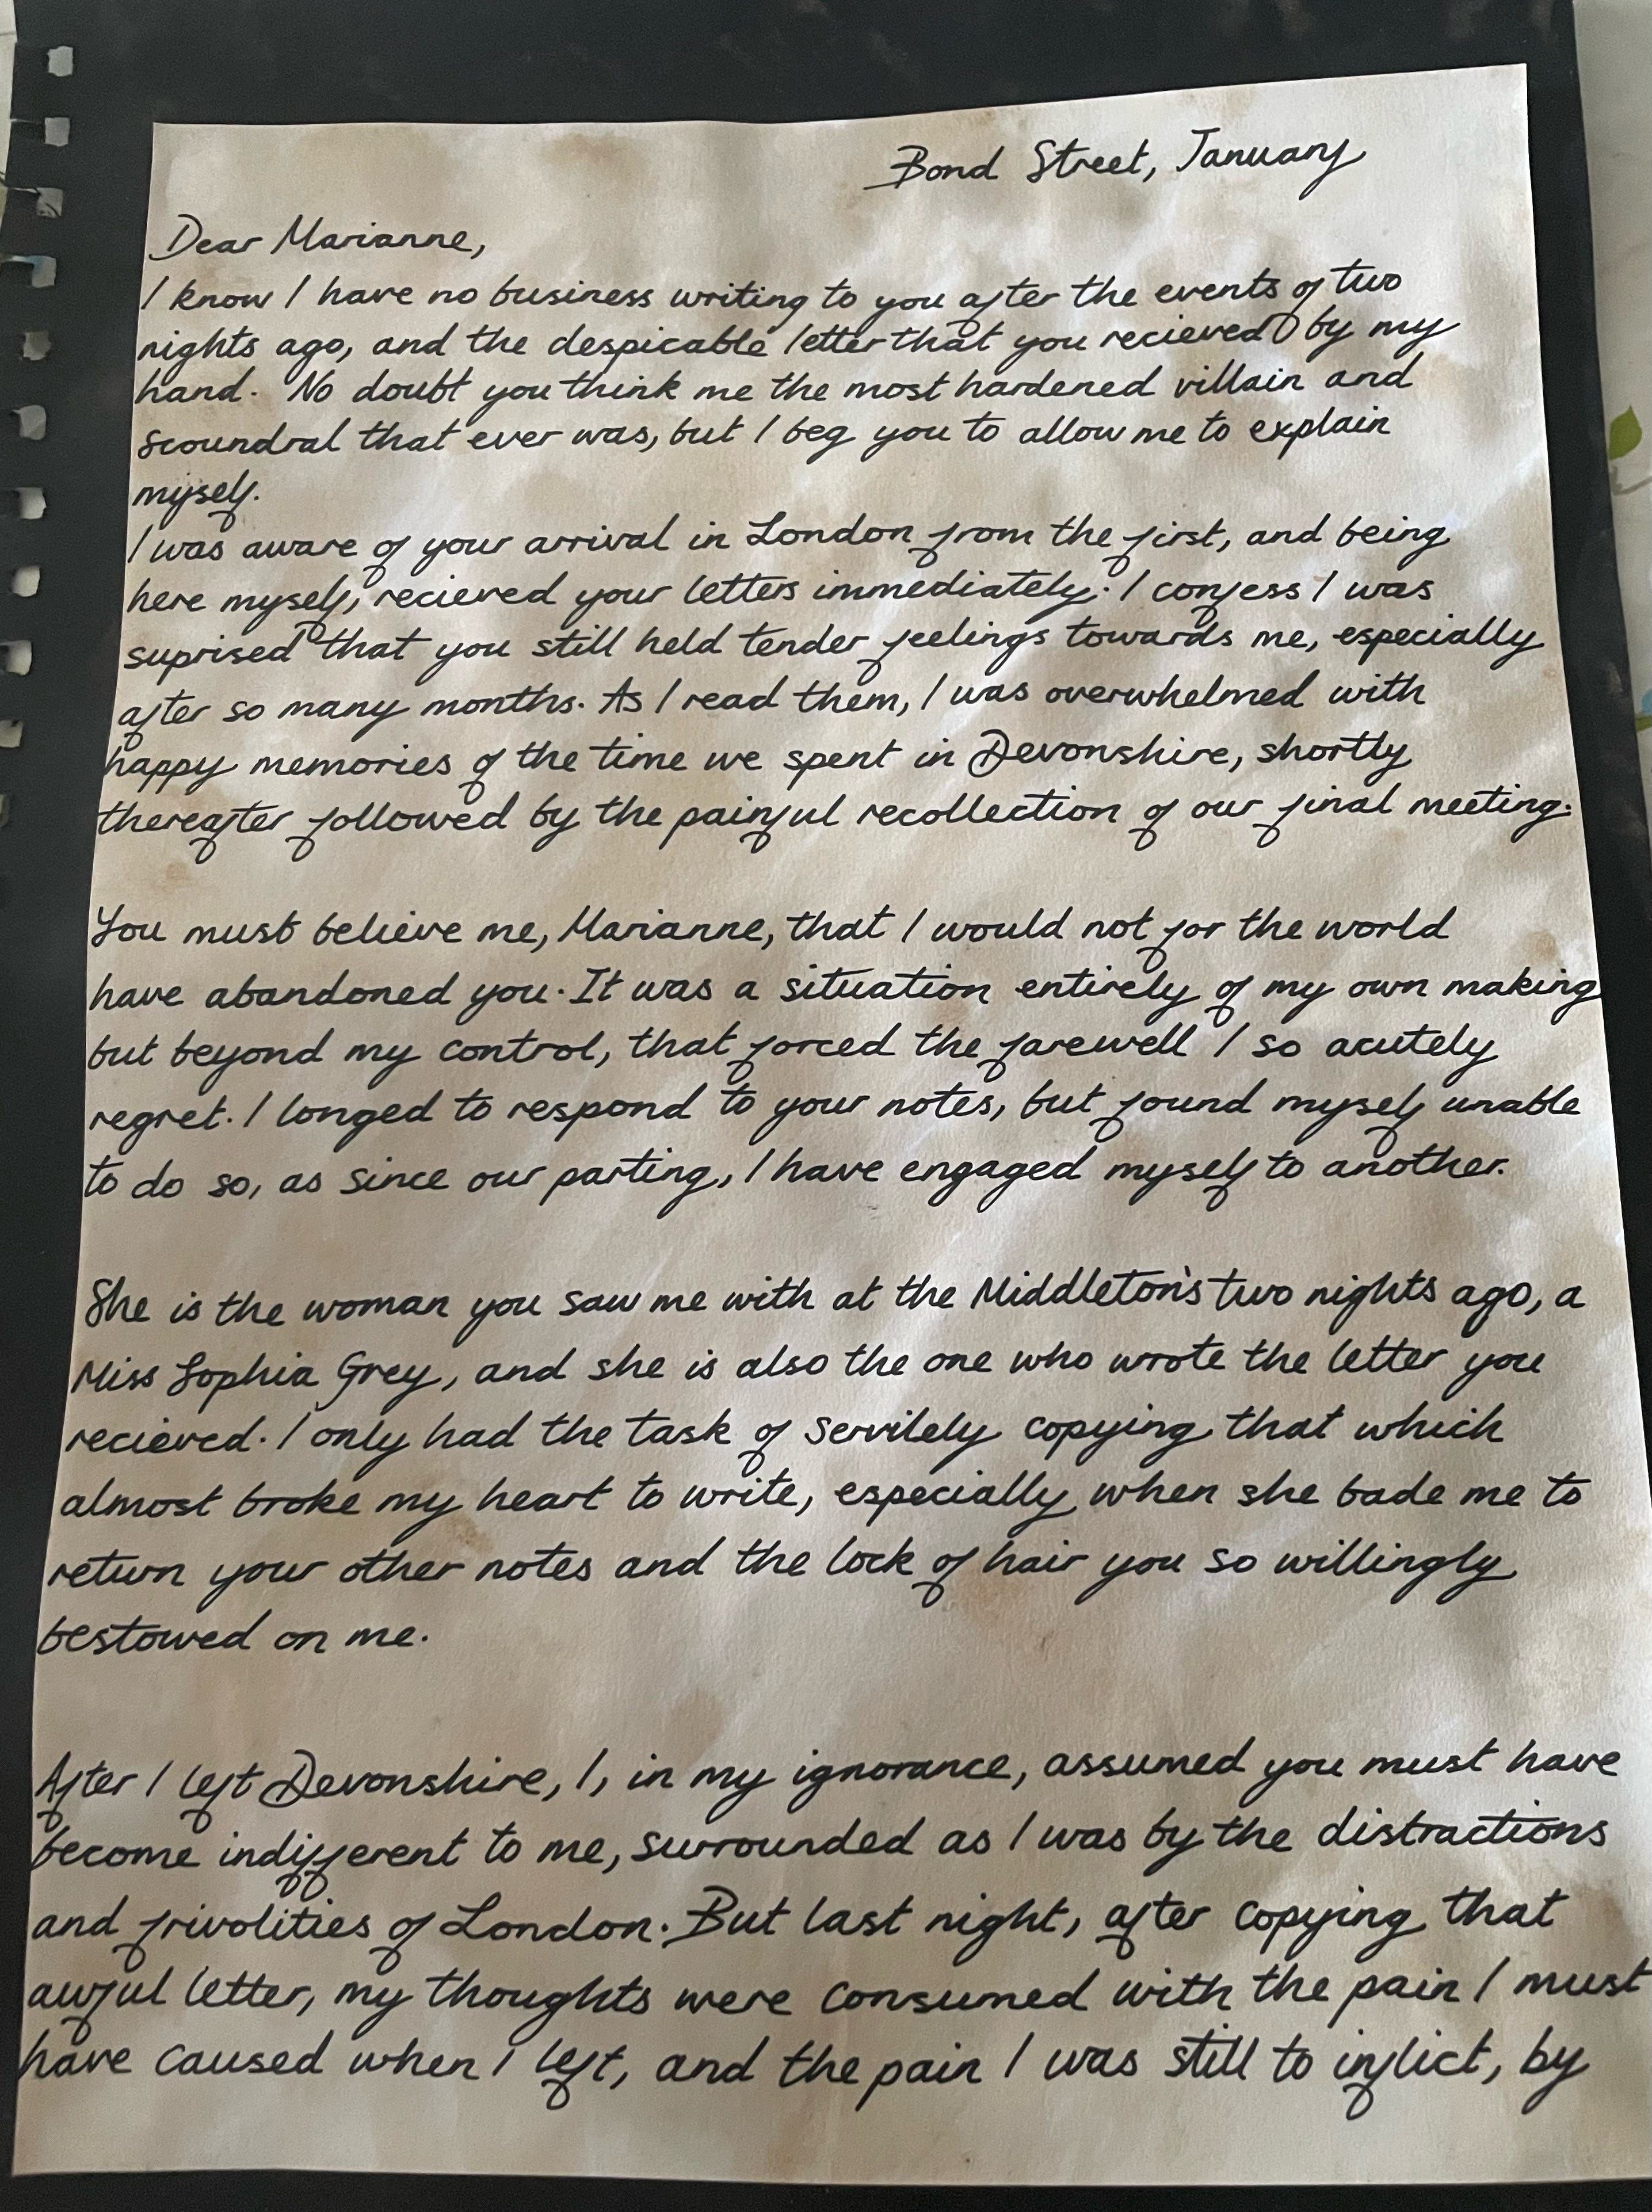 Bond Street, January
Dear Marianne,
I know I have no business writing to you after the events of two
nights ago, and the despicable letter that you recieved by my
hand. No doubt you think me the most hardened villain and
scoundral that ever was, but I beg you to allow me to explain
myself.
I was aware of your arrival in London from the first, and being
here myself, recieved your letters immediately. I confess I was
suprised that you still held tender feelings towards me, especially
after so many months. As I read them, I was overwhelmed with
happy memories of the time we spent in Devonshire, shortly
thereafter followed by the painful recollection of our final meeting.
You must believe me, Marianne, that I would not for the world
have abandoned you. It was a situation entirely of my own making
but beyond my control, that forced the farewell I so acutely
regret. I longed to respond to your notes, but found myself unable
to do so, as since our parting, I have engaged myself to another.
She is the woman you saw me with at the Middleton's two nights ago, a
Miss Sophia Grey, and she is also the one who wrote the letter you
recieved. I only had the task of servilely copying that which
almost broke my heart to write, especially when she bade me to
return your other notes and the lock of hair you so willingly
bestowed on me.
After I left Devonshire, I, in my ignorance, assumed you must have
become indifferent to me, surrounded as I was by the distractions
and frivolities of London. But last night, after copying that
awful letter, my thoughts were consumed with the pain I must
have caused when I left, and the pain I was still to inflict, by